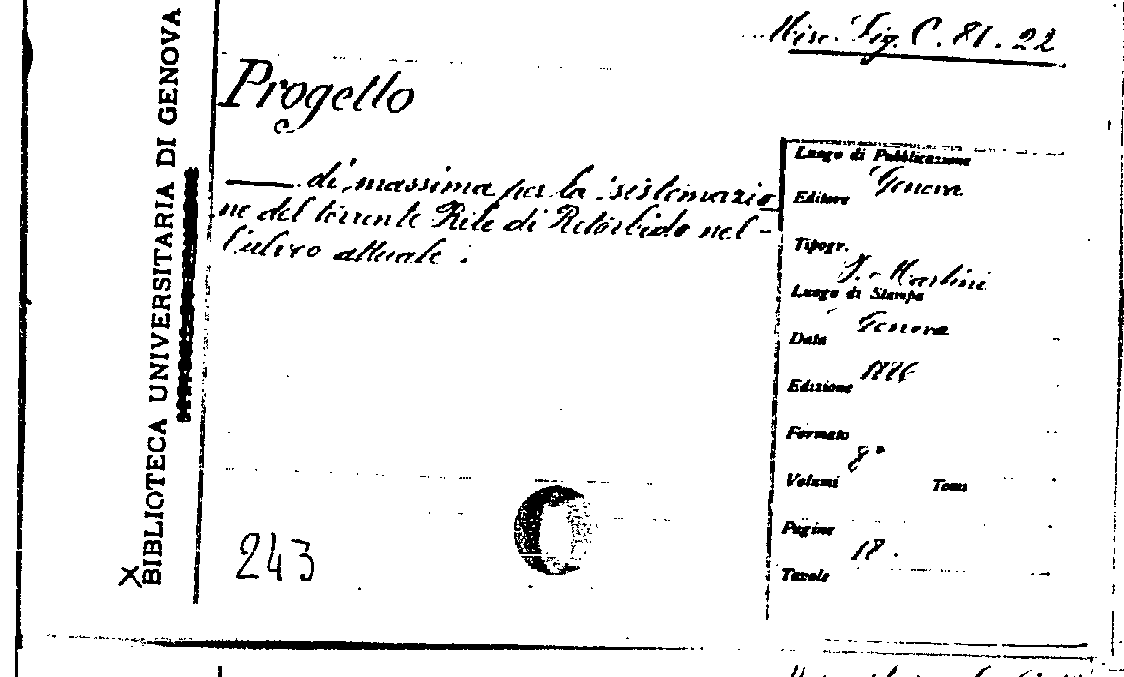 Misc. Lig. C. 81. 22
BIBLIOTECA UNIVERSITARIA DI GENOVA
Progetto
di massima per la sistemazio
ne del torrente Rile di Retorbido nel-
l'alveo attuale.
Luogo di Pubblicazione
Genova
Editore
Tipogr.
Martini
Luogo di Stampa
Genova
Data
Edizione
Formato
8°
Volumi Tomi
Pagine
18.
Tavole
243
X